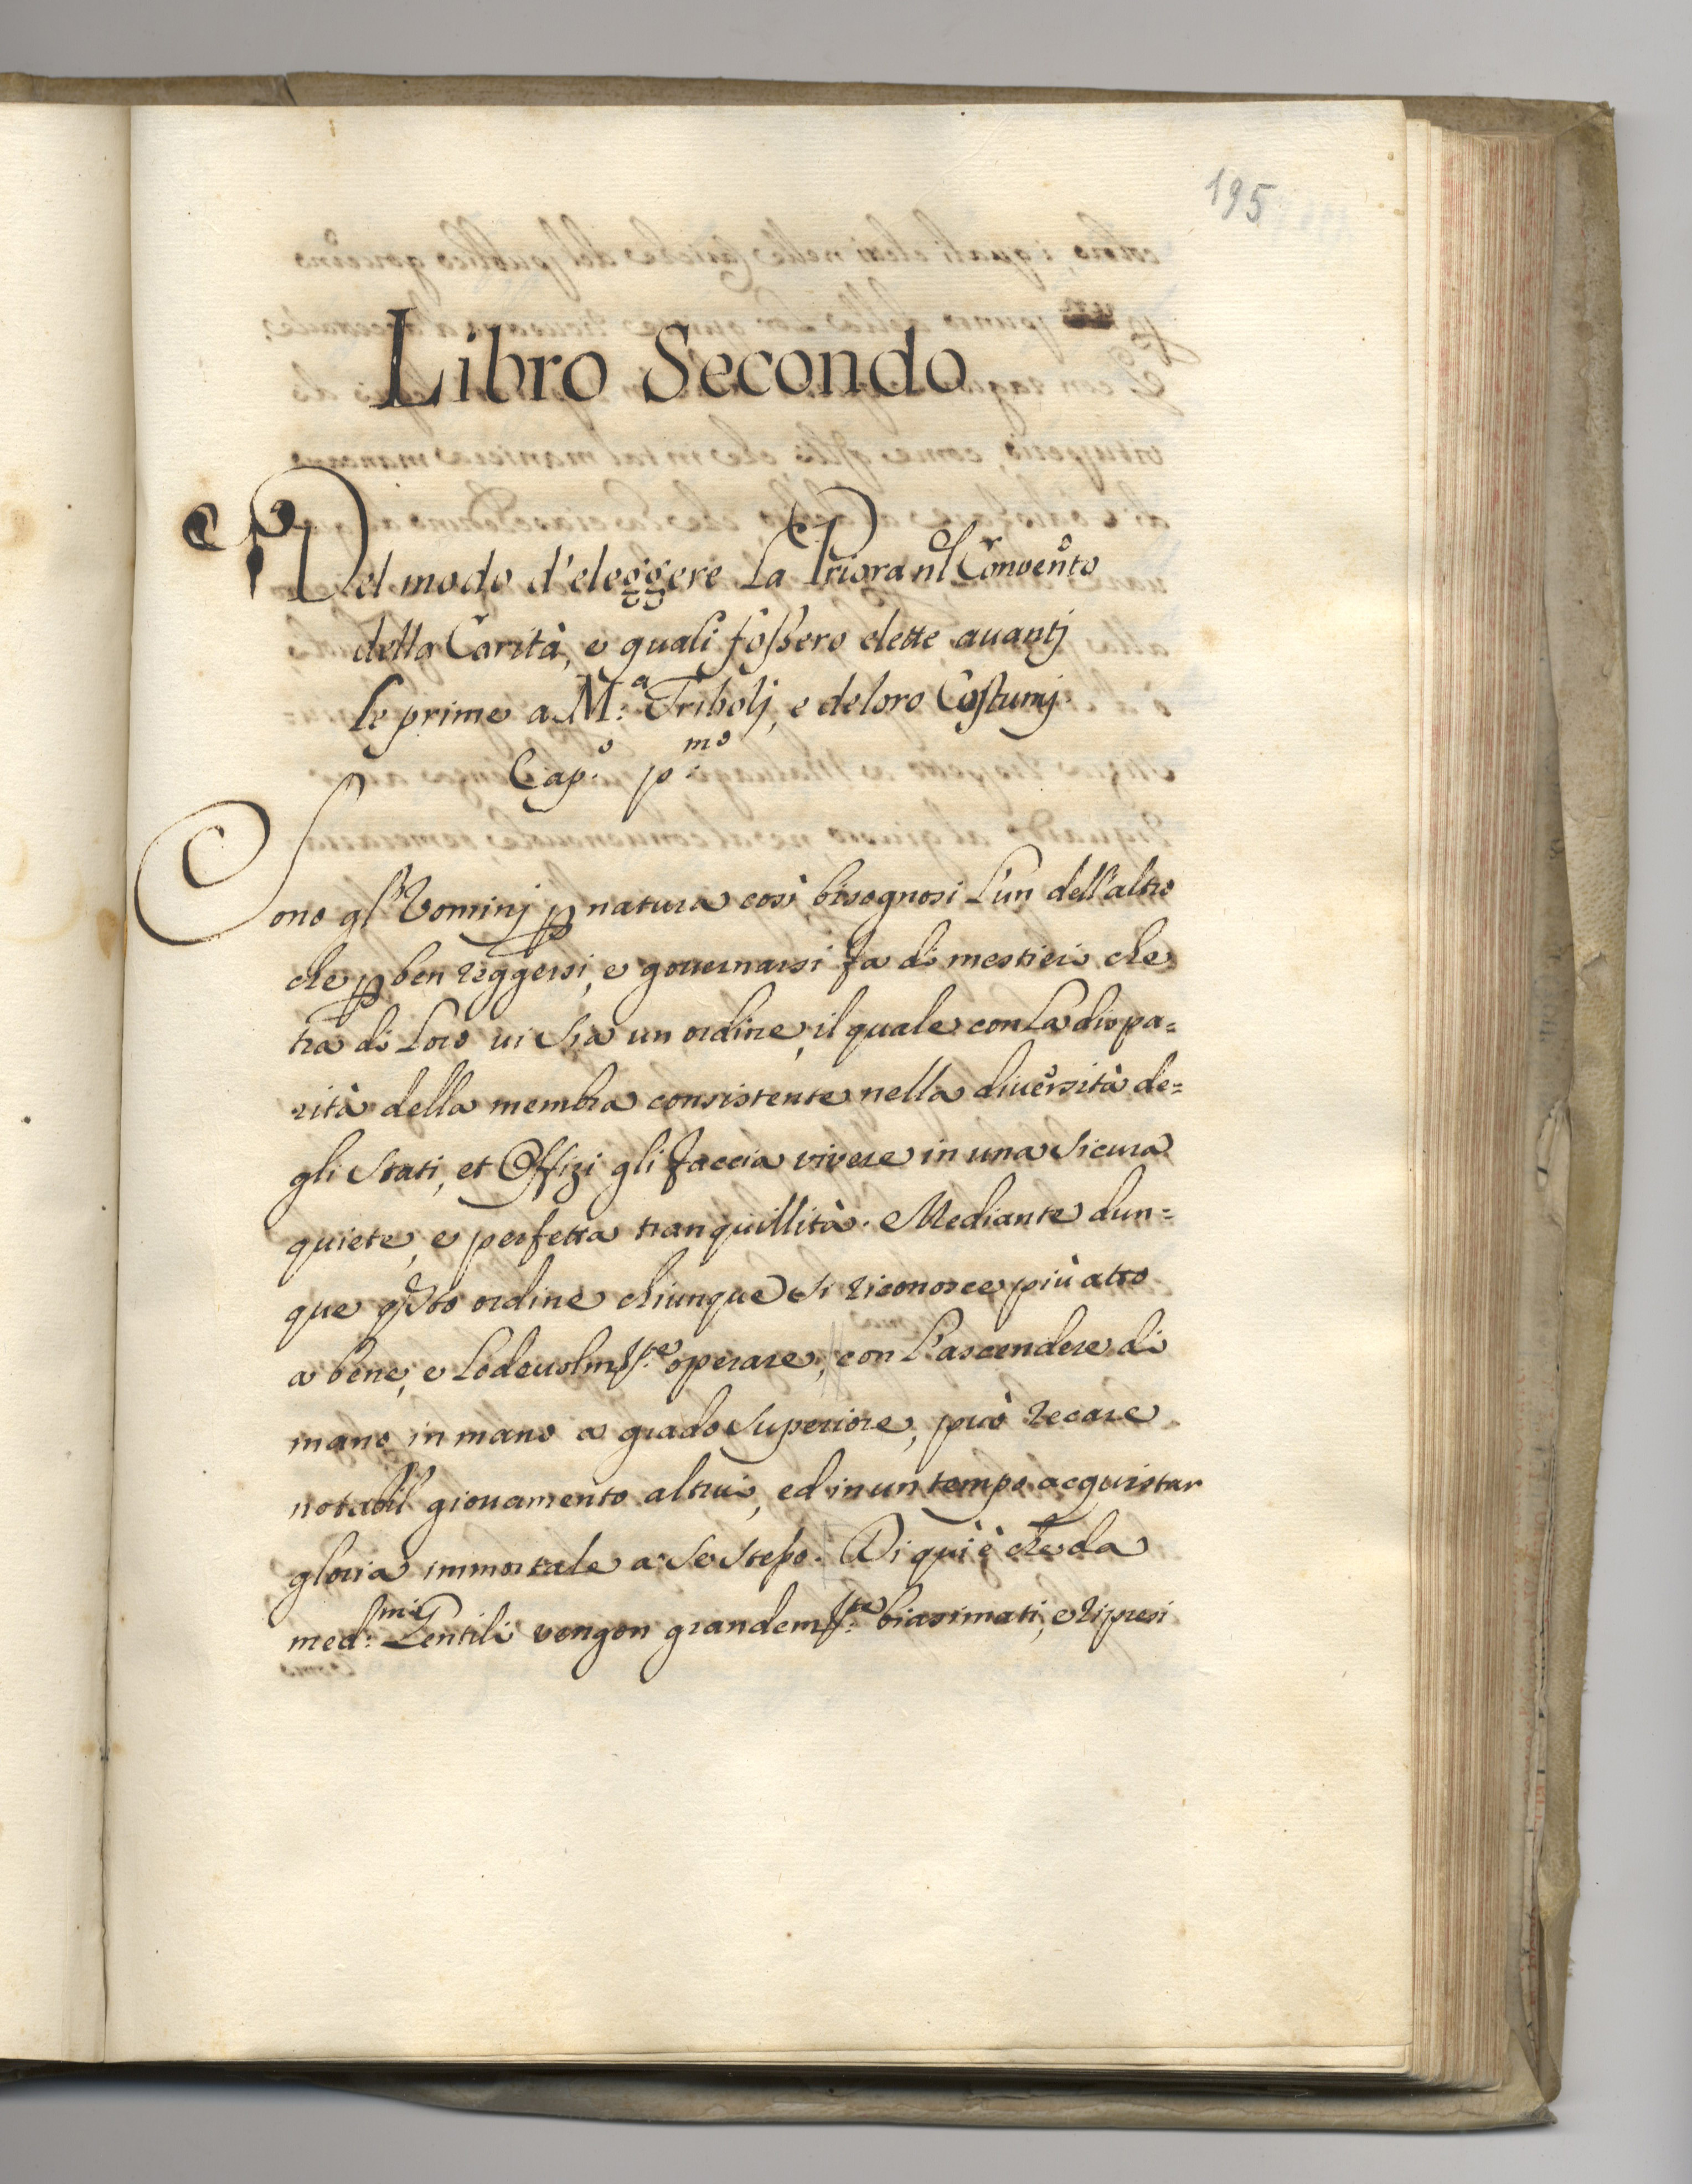 195
Libro Secondo
Del modo d'eleggere La Priora nl Convento
della Carità, e quali foßero elette avantj
le prime a M:a Tribolj, e deloro Costumj.
Cap:o p:mo
Sono gl'Uominj p natura così bisognosi L'un dell'altro
che p ben reggersi, e governarsi fa di mestieri che
tra di Loro vi sia un ordine, il quale con La dispa=
rità della membra consistente nella diversità de=
gli Stati, et Offizi gli faccia vivere in una sicura
quiete, e perfetta tranquillità. Mediante dun=
que qsto ordine chiunque si riconosce più atto
a bene, e Lodevolm:te operare, con L'ascendere di
mano in mano a grado superiore, può recare
notabil giovamento altrui, ed in un tempo acquistar
gloria immortale a se steßo. Di qui è che da
med:mi Gentili vengon grandem:te biasimati, e ripresi